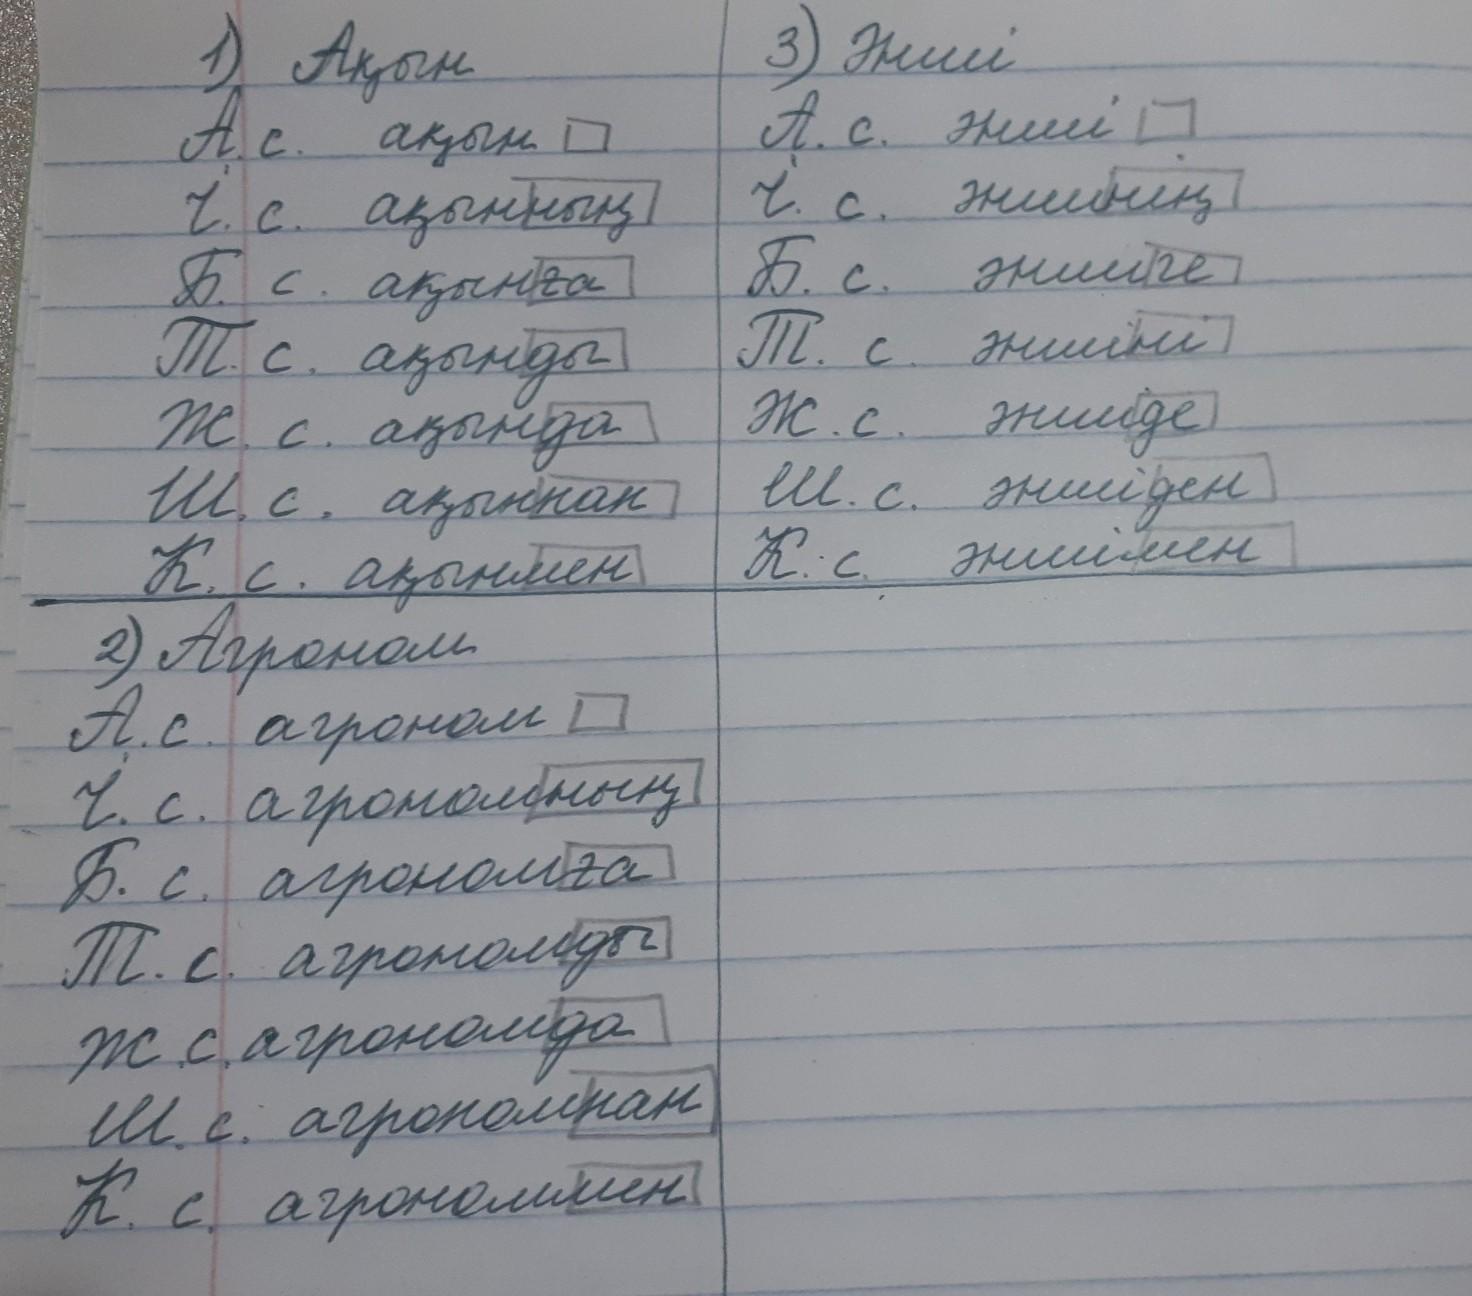 1) Ақын
А. с. ақын
І. с. ақынның
Б. с. ақынға
Т. с. ақынды
Ж. с. ақында
Ш. с. ақыннан
К. с. ақынмен
2) Агроном
А. с. агроном
І. с. агрономның
Б. с. агрономға
Т. с. агрономды
Ж. с. агрономда
Ш. с. агрономнан
К. с. агрономмен
3) Әнші
А. с. әнші
І. с. әншінің
Б. с. әншіге
Т. с. әншіні
Ж. с. әншіде
Ш. с. әншіден
К. с. әншімен